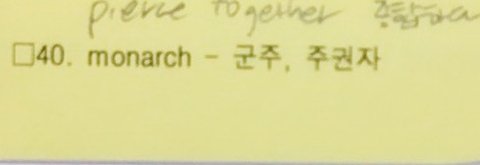 pierce together 종합하다
□40. monarch - 군주, 주권자